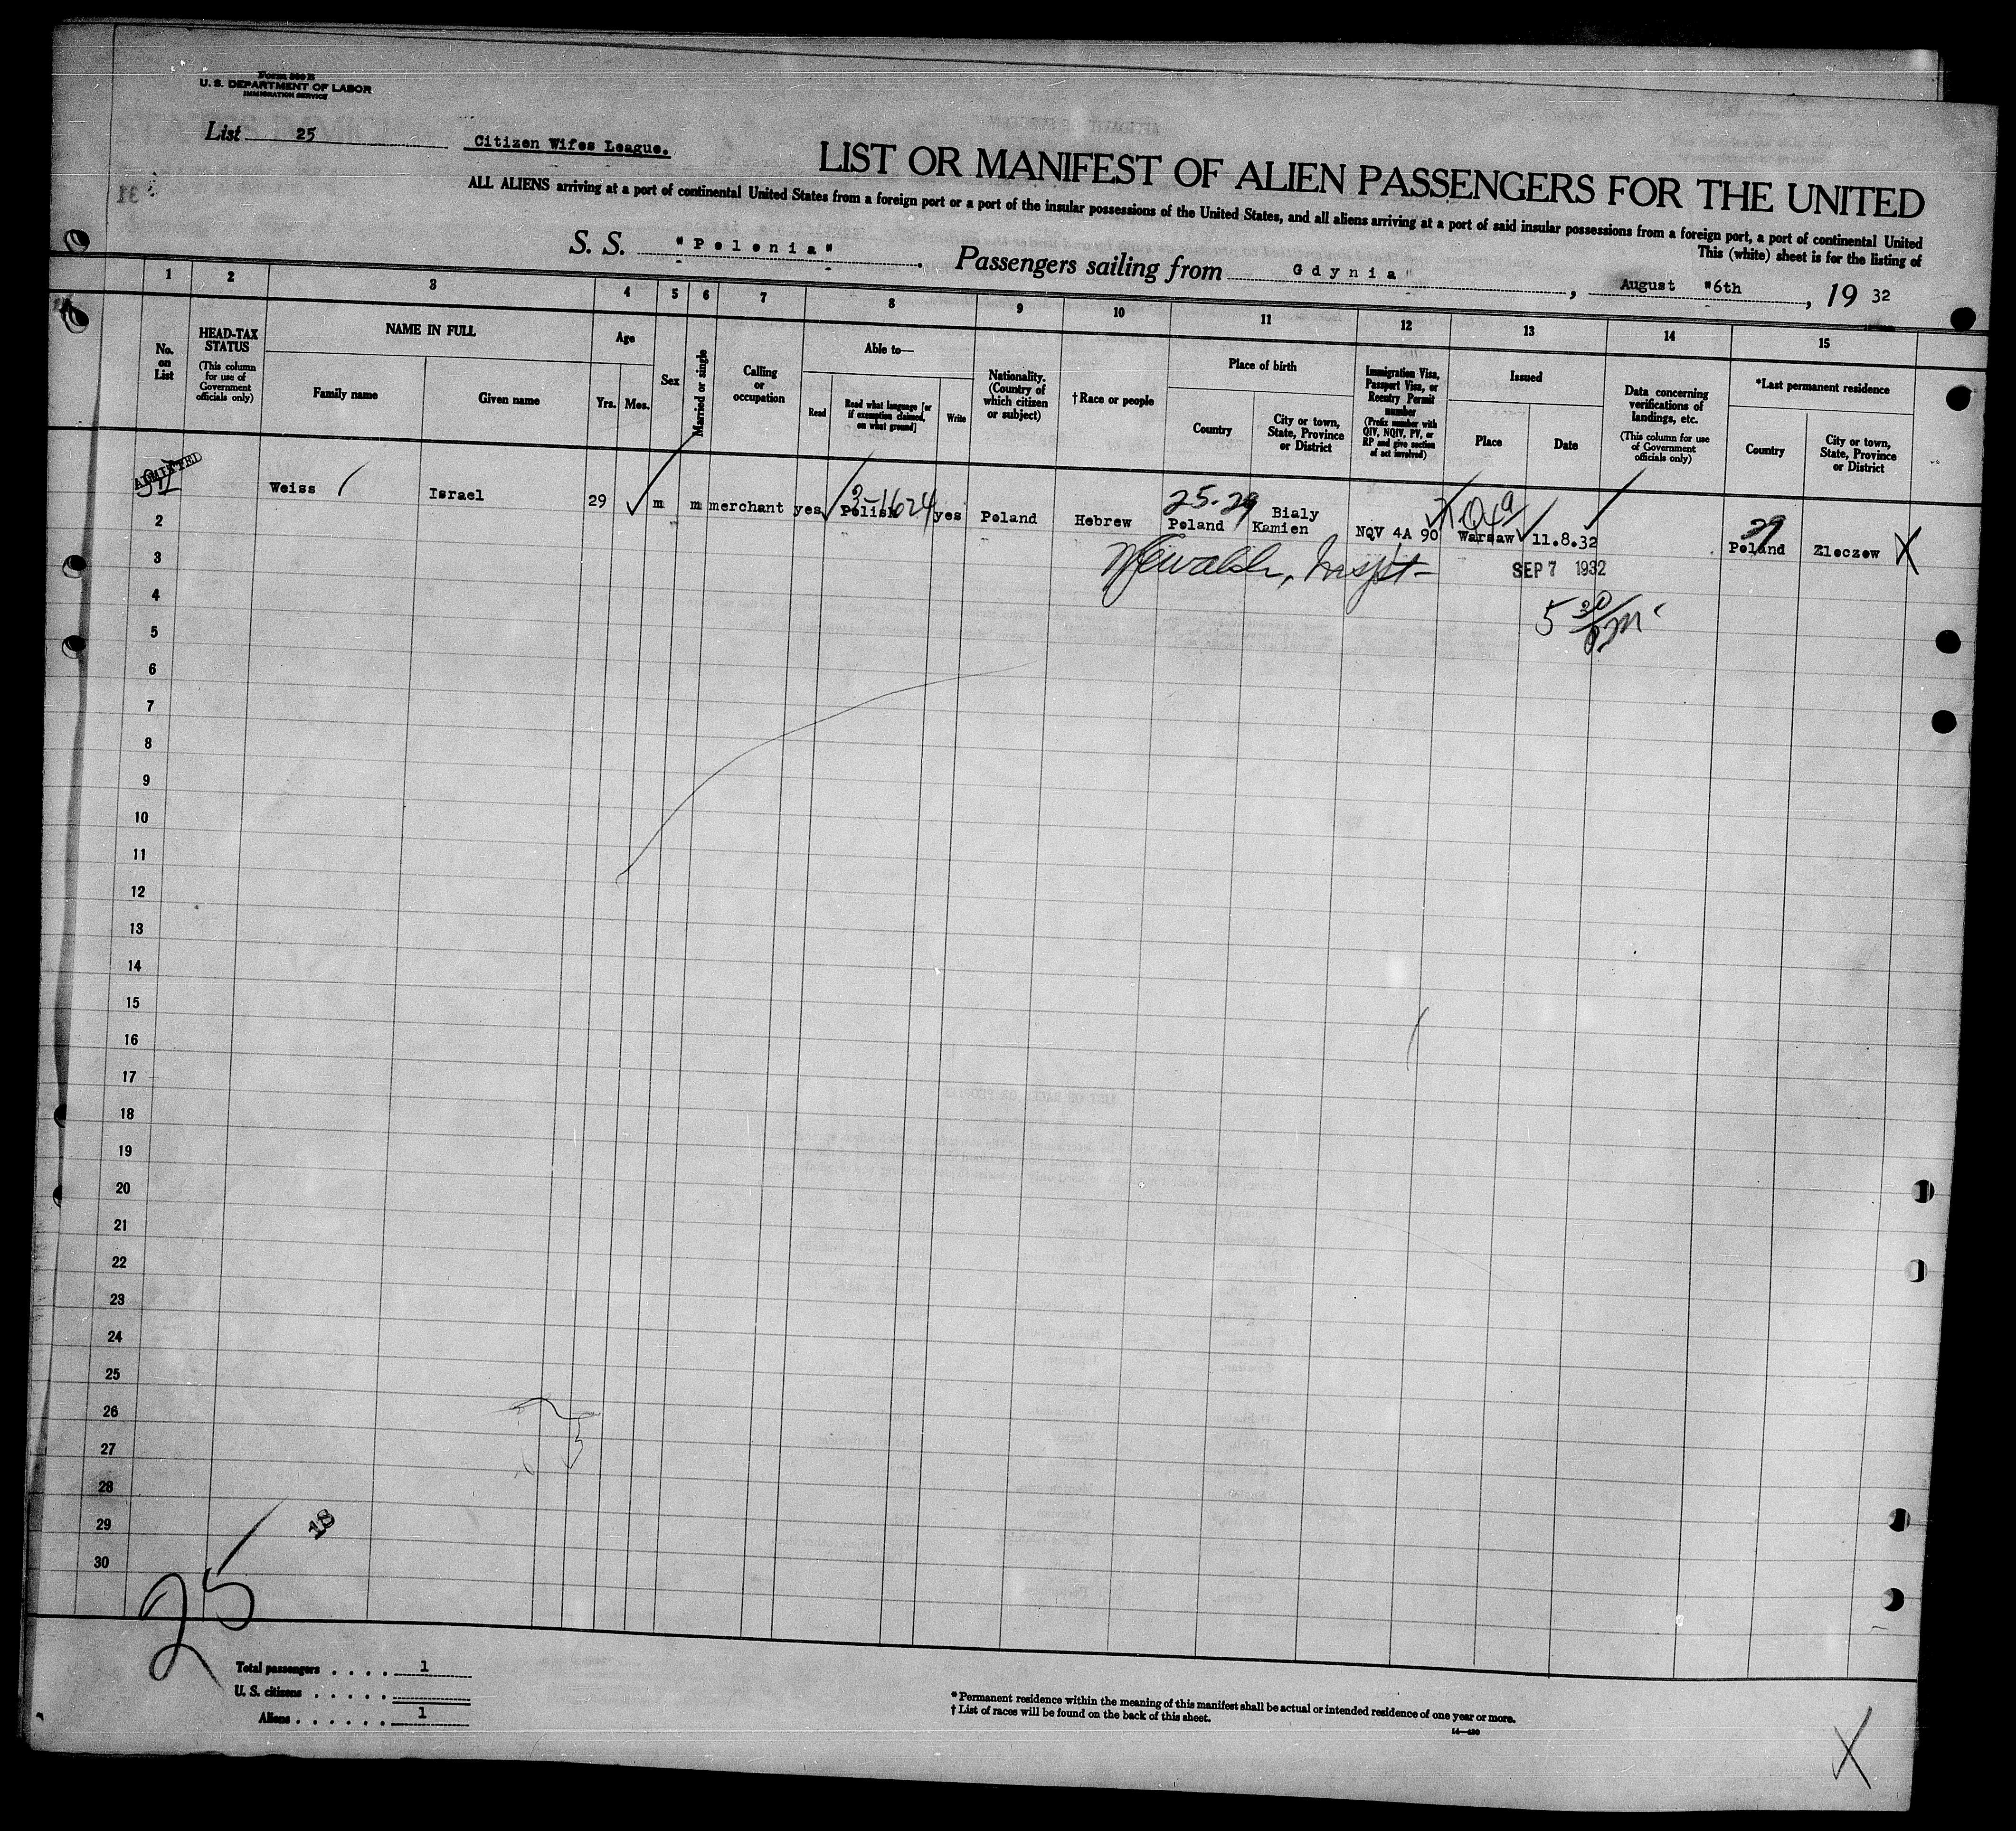 Form 500 B
U. S. DEPARTMENT OF LABOR
IMMIGRATION SERVICE
List 25
Citizen Wifes League.
LIST OR MANIFEST OF ALIEN PASSENGERS FOR THE UNITED
ALL ALIENS arriving at a port of continental United States from a foreign port or a port of the insular possessions of the United States, and all aliens arriving at a port of said insular possessions from a foreign port, a port of continental United
This (white) sheet is for the listing of
S. S. "Polonia". Passengers sailing from Gdynia", August "6th, 19 32
1 2 3 4 5 6 7 8 9 10 11 12 13 14 15
No. on List
HEAD-TAX STATUS
(This column for use of Government officials only)
NAME IN FULL
Family name
Given name
Age
Yrs. Mos.
Sex
Married or single
Calling or occupation
Able to—
Read
Read what language [or if exemption claimed, on what ground]
Write
Nationality. (Country of which citizen or subject)
†Race or people
Place of birth
Country
City or town, State, Province or District
Immigration Visa, Passport Visa, or Reentry Permit number
(Prefix number with QIV, NQIV, PV, or RP and give section of act involved)
Issued
Place
Date
Data concerning verifications of landings, etc.
(This column for use of Government officials only)
*Last permanent residence
Country
City or town, State, Province or District
ADMITTED
Weiss Israel 29 m m merchant yes Polish yes Poland Hebrew Poland Bialy Kamien NQV 4A 90 Warsaw 11.8.32 Poland Zloczow X
3-1624
25-29
29
Inspt-
SEP 7 1932
5 30/pm
2
3
4
5
6
7
8
9
10
11
12
13
14
15
16
17
18
19
20
21
22
23
24
25
26
27
28
29
30
18
25
Total passengers . . . . 1
U. S. citizens . . . . .
Aliens . . . . . . 1
* Permanent residence within the meaning of this manifest shall be actual or intended residence of one year or more.
† List of races will be found on the back of this sheet.
X